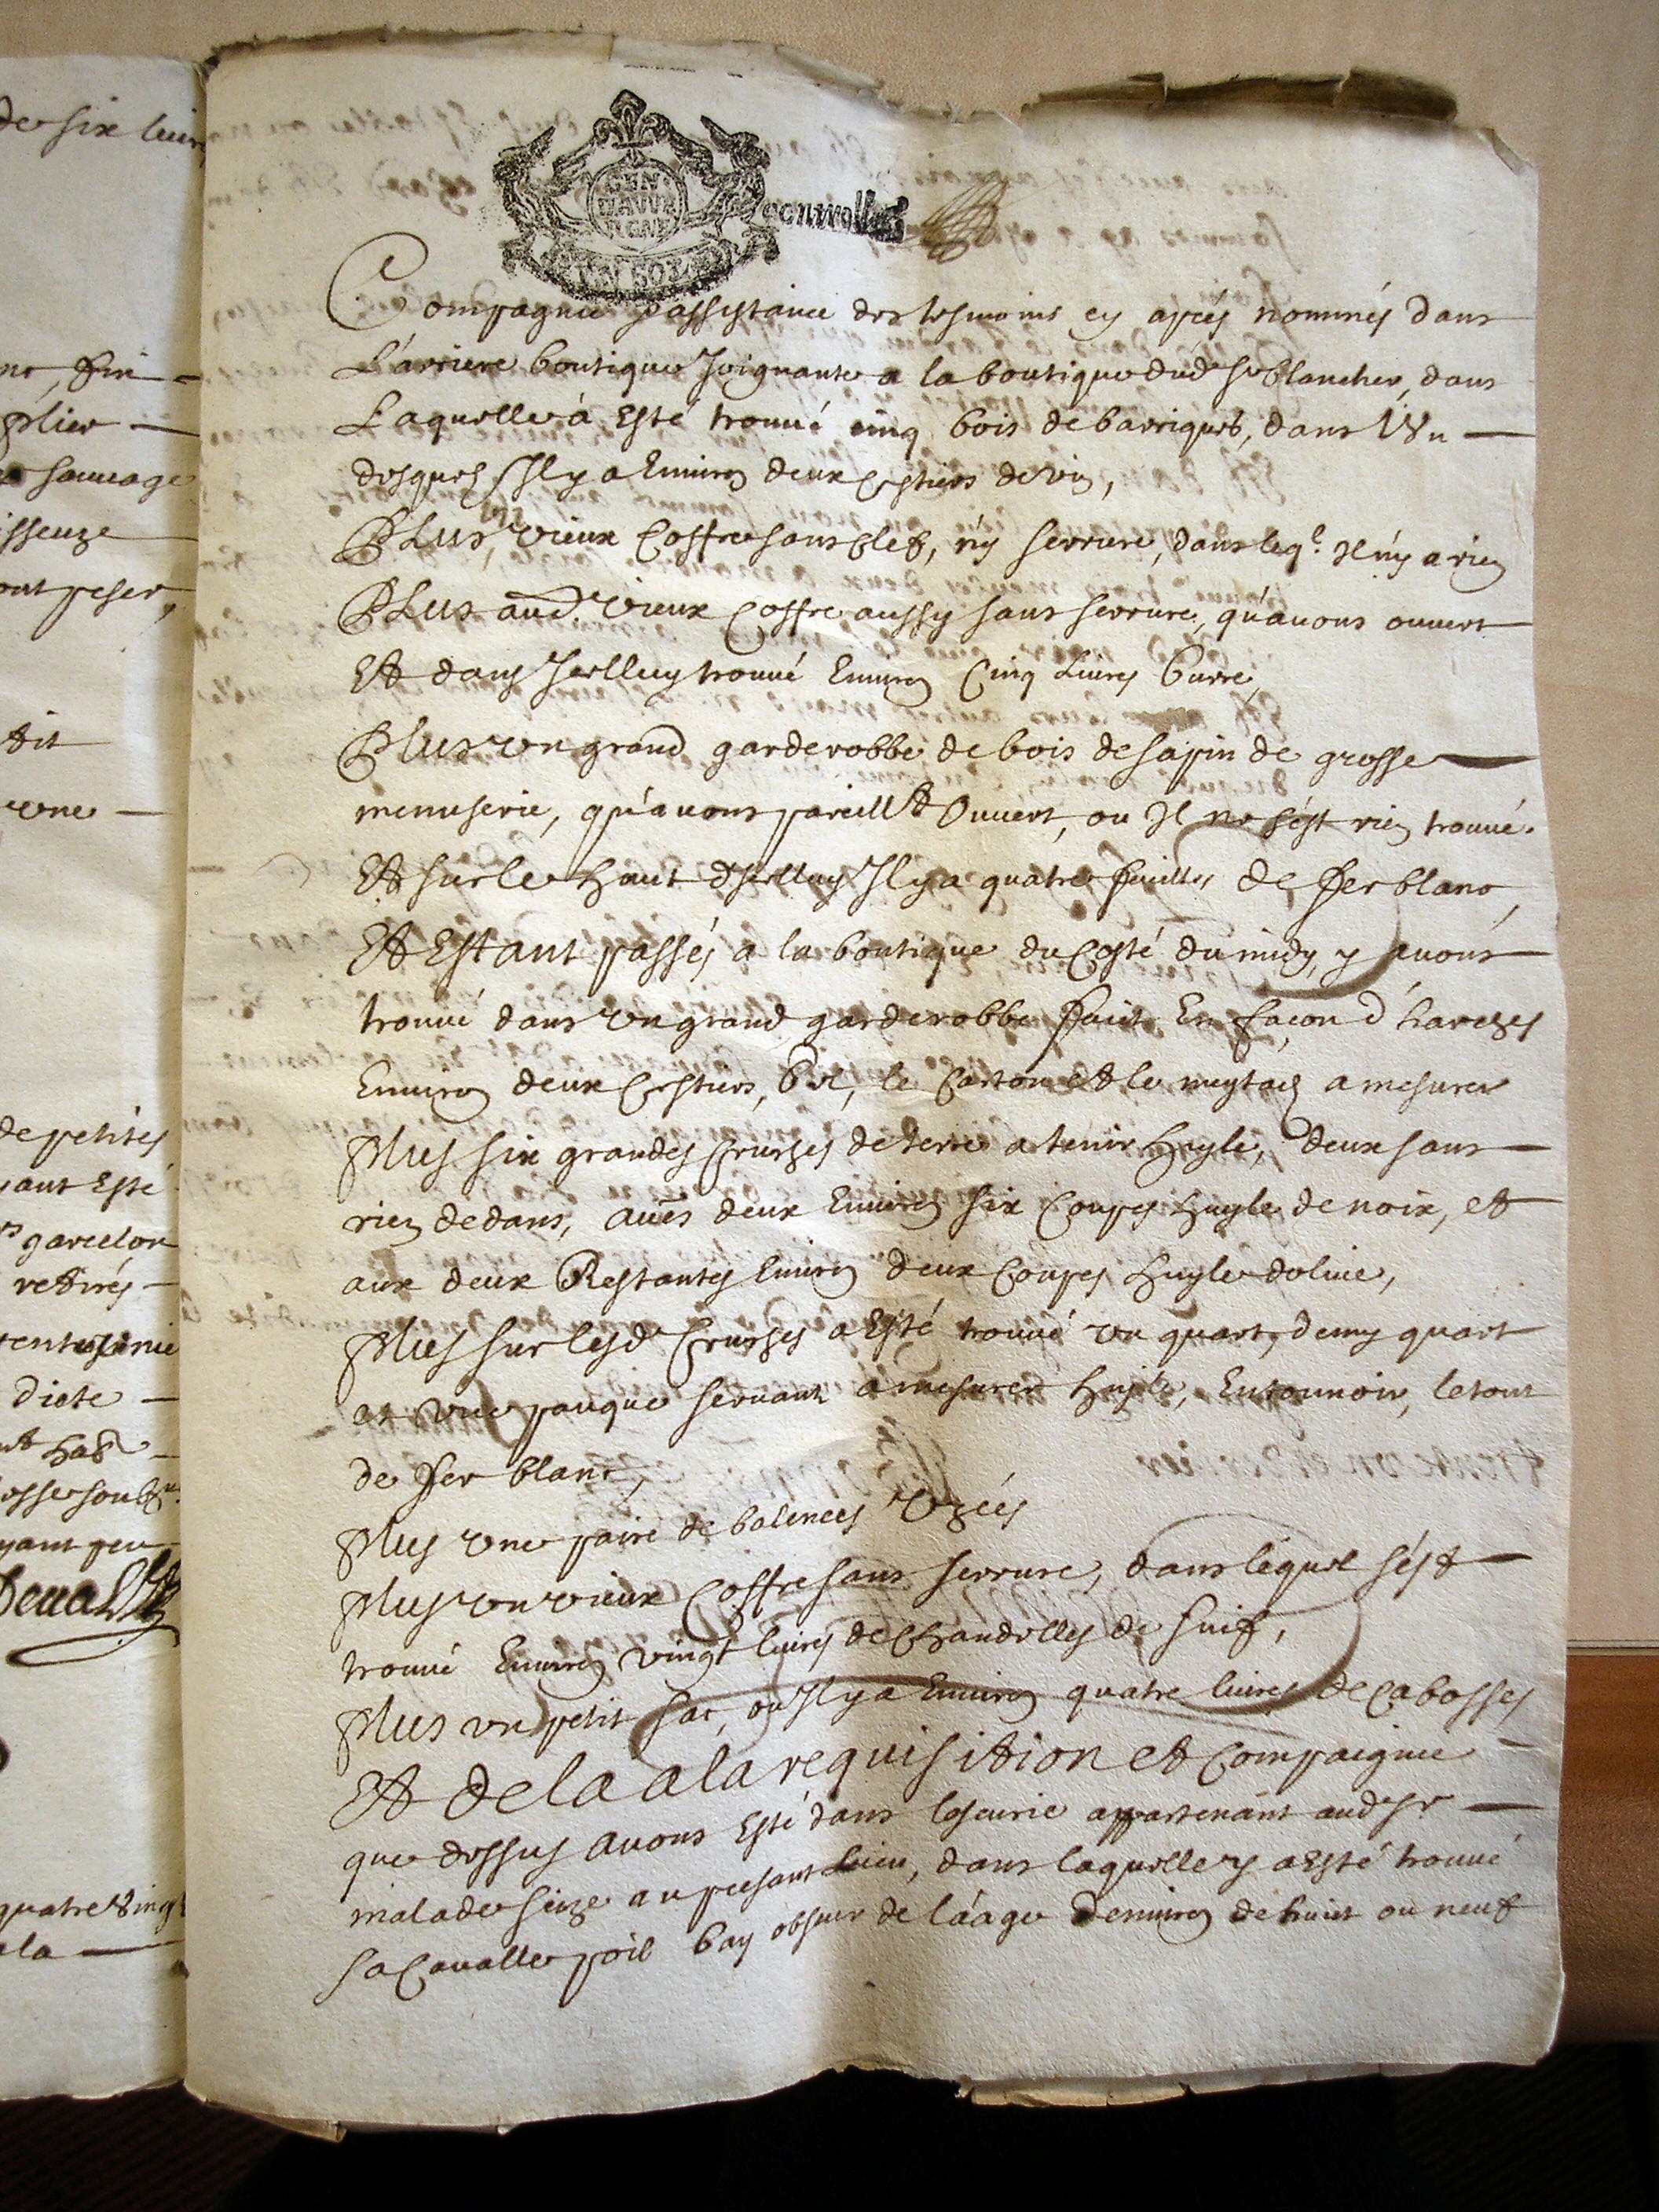 de six livr
nt, fin
plier
sauvage
issenze
ont peser,
dit
une
de petites
ayant esté
garcelon
retirés
dicte
hab
yant peu
Devall
quatre ving
la
GEN
DAVVE
controlle
Compagnie & assistance des tesmoins cy aprés nommés dans
L'arriere boutique Joignante a la boutique dud. Sr blanches, dans
Laquelle à Esté trouvé cinq bois de barriques, dans Un
desques Il y a Environ deux cestiers de vin,
PLus, un vieux Coffre sans clef, n'y serrure, dans leql. Il n'y a rien
PLus aud. vieux Coffre aussy sans serrure, qu'avons ouvert
Et dans Jcelluy trouvé Environ Cinq Livres burre,
Plus un grand garderobbe de bois de sapin de grosse
menuserie, qu'avons pareillt Ouvert, ou Il ne s'ést rien trouvé.
Et sur le haut d'Jcelluy Il y a quatre feuilles de fer blanc,
Et Estant passés a la boutique du Costé du midy, y avons
trouvé dans un grand garderobbe faict En façon d'harches
Environ deux cestiers, sel, le carton et le meytad a mesurer
Plus six grandes cruges de terre a tenir huyle, deux sans
rien dedans, aux deux Environ six Coupes huyle de noix, et
aux deux Restantes Environ deux Coupes huyle dolive,
Plus sur lesd cruges a Esté trouvé un quart, demy quart
et une pauque servant a mesurer huyle, Entounoir, le tout
de fer blanc,
Plus une paire de balences Uzées
Plus un vieux Coffre sans serrure, dans léquel s'ést
trouvé Environ vingt livres de chandelles de suif,
Plus un petit sac, ou Il y a Environ quatre livres de cabosses
Et de la a la requisition et Compaignie
que dessus avons Esté dans lescurie appartenant aud Sr
malade size au presant Lieu, dans laquelle y a Esté trouvé
sa Cavalle poil bay obscur de l'áage d'environ de huict ou neuf